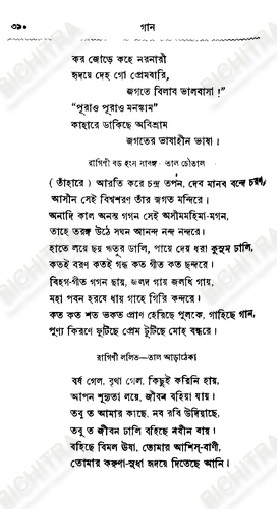 ৩৯০
গান
কর জোড়ে কহে নরনারী
হৃদয়ে দেহ গো প্রেমবারি,
জগতে বিলাব ভালবাসা!”
“পূরাও পূরাও মনস্কাম”
কাহারে ডাকিছে অবিশ্রাম
জগতের ভাষাহীন ভাষা!
রাগিণী বড় হংস সারঙ্গ–তাল চৌতাল
(তাঁহারে) আরতি করে চন্দ্র তপন, দেব মানব বন্দে চরণ,
আসীন সেই বিশ্বশরণ তাঁর জগত মন্দিরে।
অনাদি কাল অনন্ত গগন সেই অসীমমহিমা-মগন,
তাহে তরঙ্গ উঠে সঘন আনন্দ নন্দ নন্দরে।
হাতে লয়ে ছয় ঋতুর ডালি, পায়ে দেয় ধরা কুসুম ঢালি,
কতই বরণ কতই গন্ধ কত গীত কত ছন্দরে।
বিহগ-গীত গগন ছায়, জলদ গায় জলধি গায়,
মহা পবন হরষে ধায় গাহে গিরি কন্দরে।
কত কত শত ভকত প্রাণ হেরিছে পুলকে, গাহিছে গান,
পুণ্য কিরণে ফুটিছে প্রেম টুটিছে মোহ বন্ধরে।
রাগিণী ললিত–তাল আড়াঠেকা
বর্ষ গেল, বৃথা গেল, কিছুই করিনি হায়,
আপন শূন্যতা লয়ে, জীবন বহিয়া যায়।
তবু ত আমার কাছে, নব রবি উদিয়াছে,
তবু ত জীবন ঢালি বহিছে নবীন বায়।
বহিছে বিমল ঊষা, তোমার আশিস-বাণী,
তোমার করুণা-সুধা হৃদয়ে দিতেছে আনি।
BICHITRA